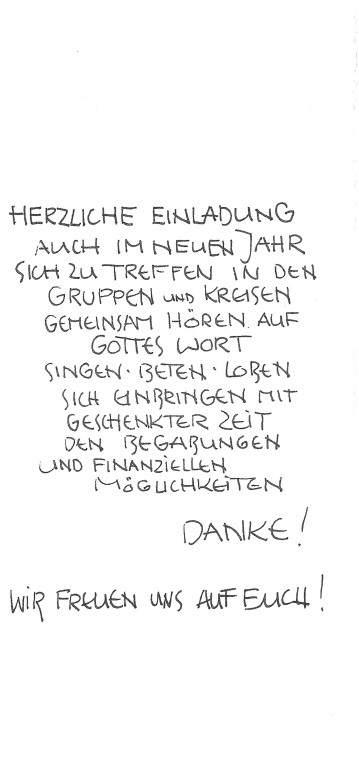 HERZLICHE EINLADUNG
AUCH IM NEUEN JAHR
SICH ZU TREFFEN IN DEN
GRUPPEN UND KREISEN
GEMEINSAM HÖREN AUF
GOTTES WORT
SINGEN · BETEN · LOBEN
SICH EINBRINGEN MIT
GESCHENKTER ZEIT
DEN BEGABUNGEN
UND FINANZIELLEN
MÖGLICHKEITEN
DANKE!
WIR FREUEN UNS AUF EUCH!